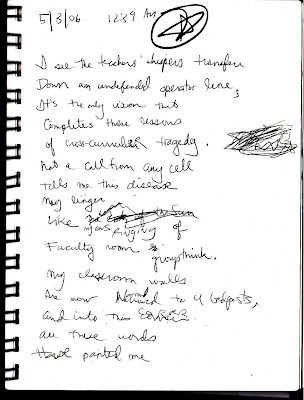 5/3/06 1239 Am
I see the teachers' whispers transfer
Down an undefended operator line,
It's the only vision that
Completes these lessons
of cross-curricular tragedy.
Not a call from any cell
Tells me this disease
May linger
Like
ringing of
Faculty room groupthink.
My classroom walls
Are now to 4
And into this
are these words
painted me